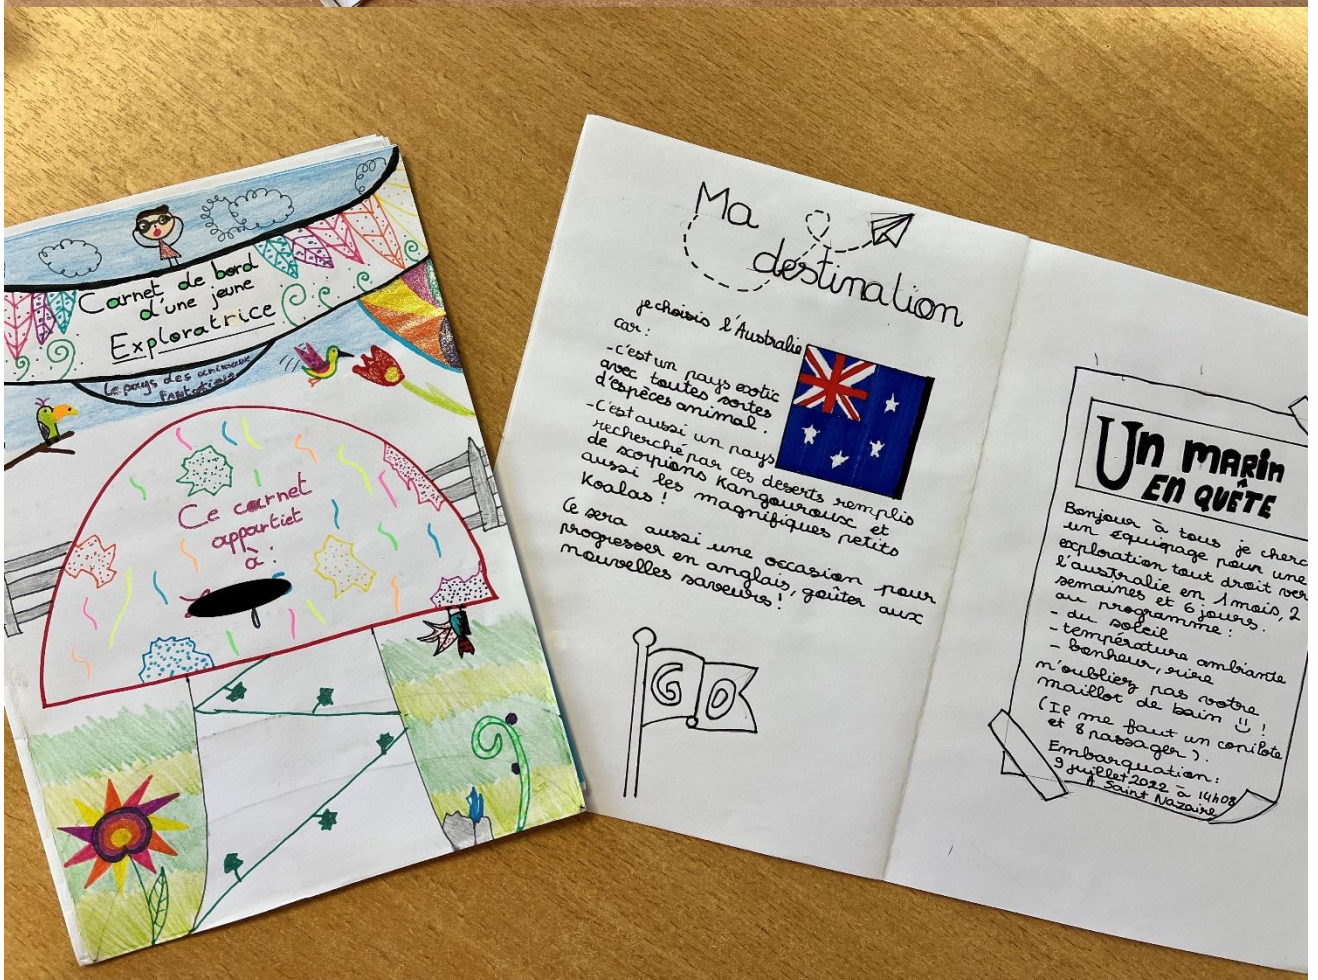 Carnet de bord
d'une jeune
Exploratrice
Le pays des animaux
FANTASTIQUES
Ce carnet
appartiet
à :
Ma
destination
je choisis l'Australie
car :
- c'est un pays exotic
avec toutes sortes
d'espèces animal.
- C'est aussi un pays
recherché par ces deserts remplis
de scorpions Kangouroux et
aussi les magnifiques petits
Koalas !
Ce sera aussi une occasion pour
progresser en anglais, goûter aux
nouvelles saveurs !
GO
Un MARin
EN QUÊTE
Bonjour à tous je cherc
un équipage pour une
exploration tout droit ver
l'ausTralie en 1 mois, 2
semaines et 6 jours.
au programme :
- du soleil
- température ambiante
- bonheur, rire
n'oubliez pas votre
maillot de bain !! !
(Il me faut un copilote
et 8 passager).
Embarquation :
9 juillet 2022 à 14h08
A Saint Nazaire